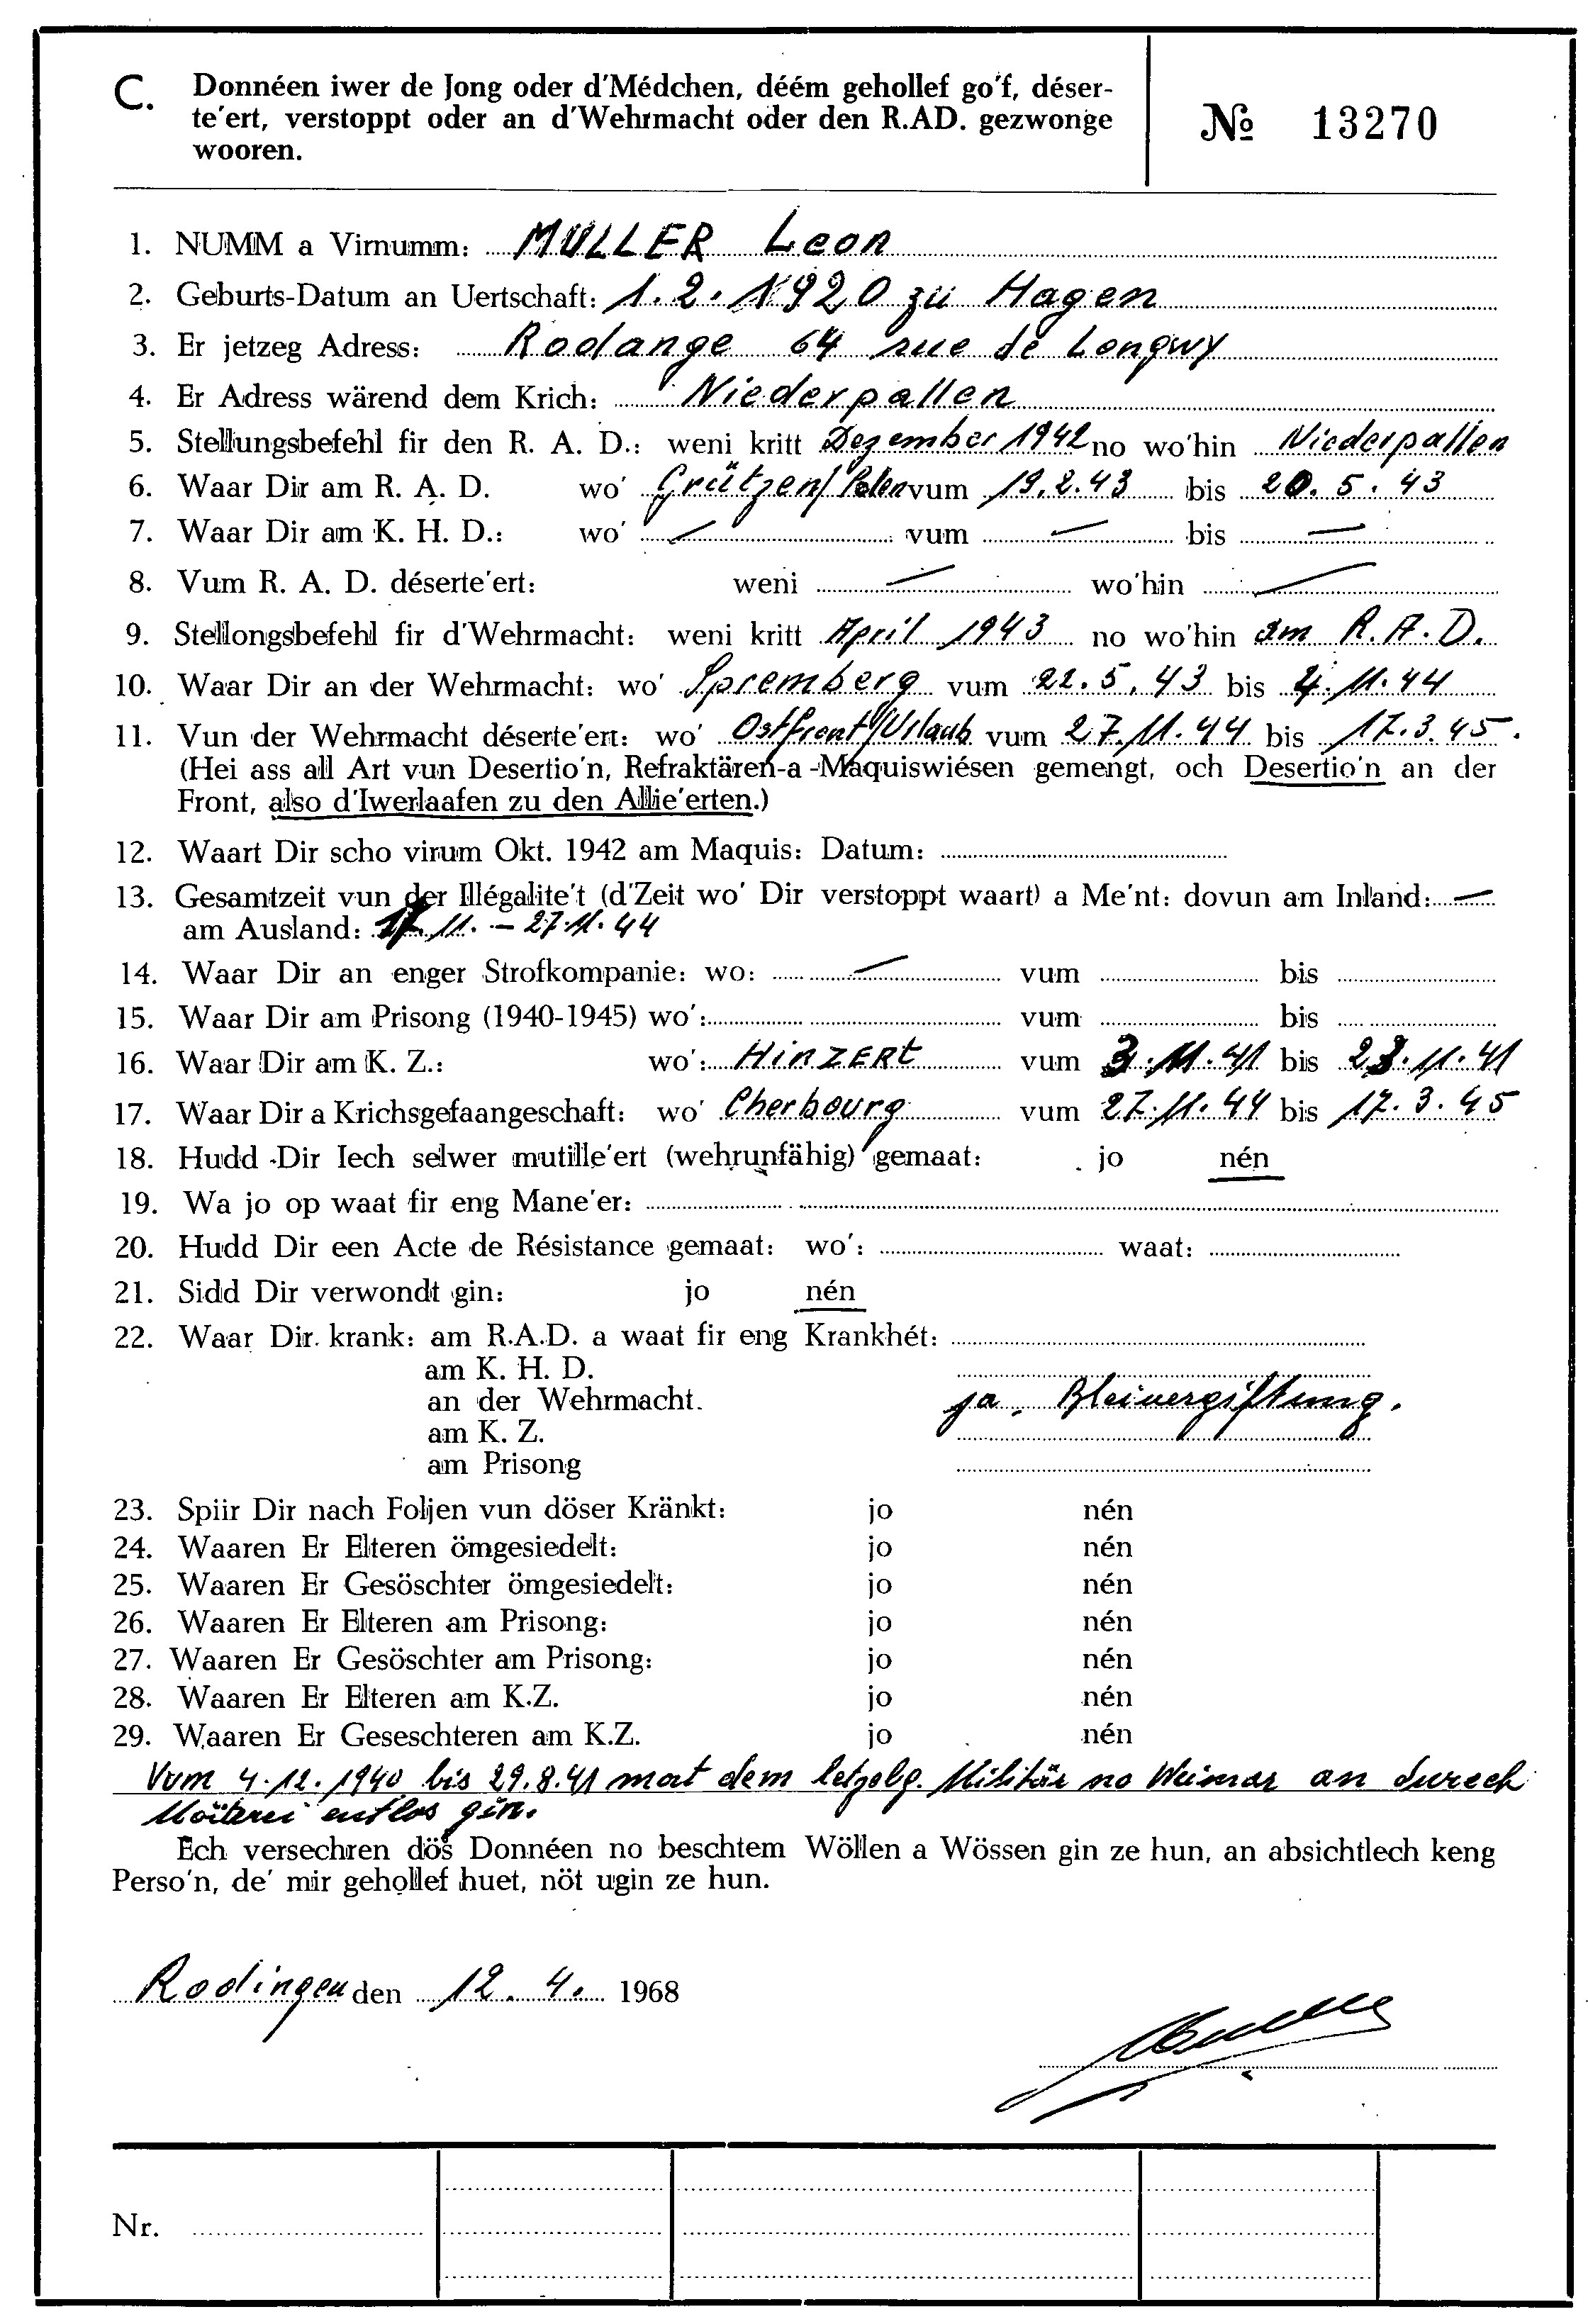 C. Donnéen iwer de Jong oder d'Médchen, déém gehollef go'f, déser-
te'ert, verstoppt oder an d'Wehrmacht oder den R.AD. gezwonge
wooren.
№ 13270
1. NUMM a Virnumm: MULLER Leon
2. Geburts-Datum an Uertschaft: 1.2.1920 zu Hagen
3. Er jetzeg Adress: Rodange 64 rue de Longwy
4. Er Adress wärend dem Krich: Niederpallen
5. Stellungsbefehl fir den R. A. D.: weni kritt Dezember 1942 no wo'hin Niederpallen
6. Waar Dir am R. A. D. wo' Grützen/Polen vum 19.2.43 bis 20.5.43
7. Waar Dir am K. H. D.: wo' — vum — bis —
8. Vum R. A. D. déserte'ert: weni — wo'hin —
9. Stellongsbefehl fir d'Wehrmacht: weni kritt April 1943 no wo'hin am R.A.D.
10. Waar Dir an der Wehrmacht: wo' Spremberg vum 22.5.43 bis 4.11.44
11. Vun der Wehrmacht déserte'ert: wo' Ostfront/Urlaub vum 27.11.44 bis 17.3.45.
(Hei ass all Art vun Desertio'n, Refraktären-a-Maquiswiésen gemengt, och Desertio'n an der
Front, also d'Iwerlaafen zu den Allie'erten.)
12. Waart Dir scho virum Okt. 1942 am Maquis: Datum:
13. Gesamtzeit vun der Illégalite't (d'Zeit wo' Dir verstoppt waart) a Me'nt: dovun am Inland: —
am Ausland: 17.11. – 27.11.44
14. Waar Dir an enger Strofkompanie: wo: — vum bis
15. Waar Dir am Prisong (1940-1945) wo': vum bis
16. Waar Dir am K. Z.: wo': HinZERt vum 3.11.41 bis 23.11.41
17. Waar Dir a Krichsgefaangeschaft: wo' Cherbourg vum 27.11.44 bis 17.3.45
18. Hudd Dir Iech selwer mutille'ert (wehrunfähig) gemaat: jo nén
19. Wa jo op waat fir eng Mane'er:
20. Hudd Dir een Acte de Résistance gemaat: wo': waat:
21. Sidd Dir verwondt gin: jo nén
22. Waar Dir krank: am R.A.D. a waat fir eng Krankhét:
am K. H. D.
an der Wehrmacht. ja, Bleivergiftung.
am K. Z.
am Prisong
23. Spiir Dir nach Foljen vun döser Kränkt: jo nén
24. Waaren Er Elteren ömgesiedelt: jo nén
25. Waaren Er Gesöschter ömgesiedelt: jo nén
26. Waaren Er Elteren am Prisong: jo nén
27. Waaren Er Gesöschter am Prisong: jo nén
28. Waaren Er Elteren am K.Z. jo nén
29. Waaren Er Geseschteren am K.Z. jo nén
Vum 4.12.1940 bis 29.8.41 mat dem letzebg. Militär no Weimar an durech
Moiterei entlos gin.
Ech versechren dös Donnéen no beschtem Wöllen a Wössen gin ze hun, an absichtlech keng
Perso'n, de' mir gehollef huet, nöt ugin ze hun.
Rodingen den 12. 4. 1968
Nr.